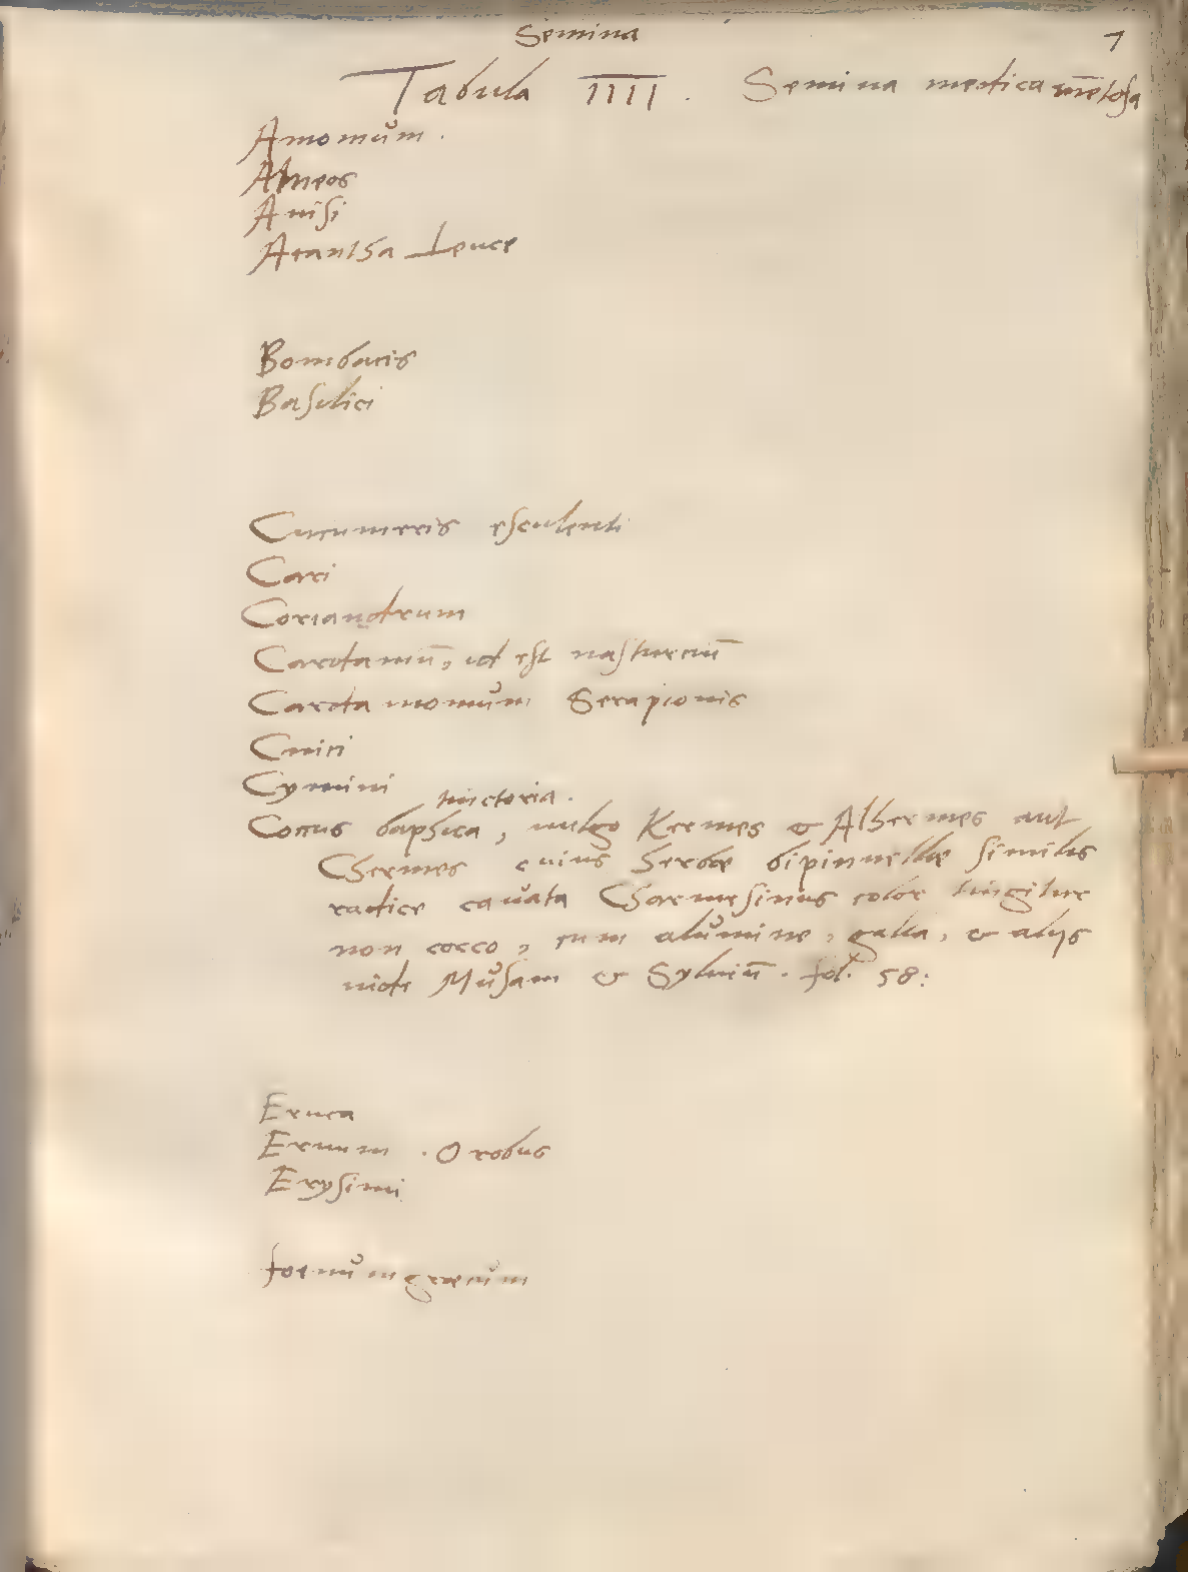 Semina
7
Tabula IIII. Semina medicamētosa
Amomum.
Ameos
Anisi
Acantha Leuce
Bombacis
Basilici
Cucumeris esculenti
Cari
Coriandrum
Cardamū, id est nasturciū
Cardamomum Serapionis
Cnici
Cymini
tinctoria.
Coccus baphica, uulgo Kermes & Alhermes aut
Chermes cuius herbæ bipinnellæ similis
radice cauata Charmesinus color tingitur
non cocco, cum alumine, galla, & alijs
uide Musam & Syluiū. fol. 58:
Eruca
Eruum. Orobus
Erysimi
foenumgræcum